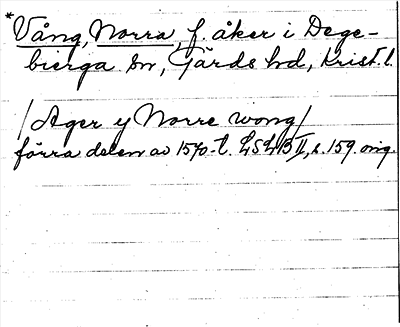 * Vång, Norra, f. åker i Dege-
bierga sn, Gärds hd, Krist. l.
/ Ager y Norre wong /
förra delen av 1570-t. LSLB II, s. 159. orig.